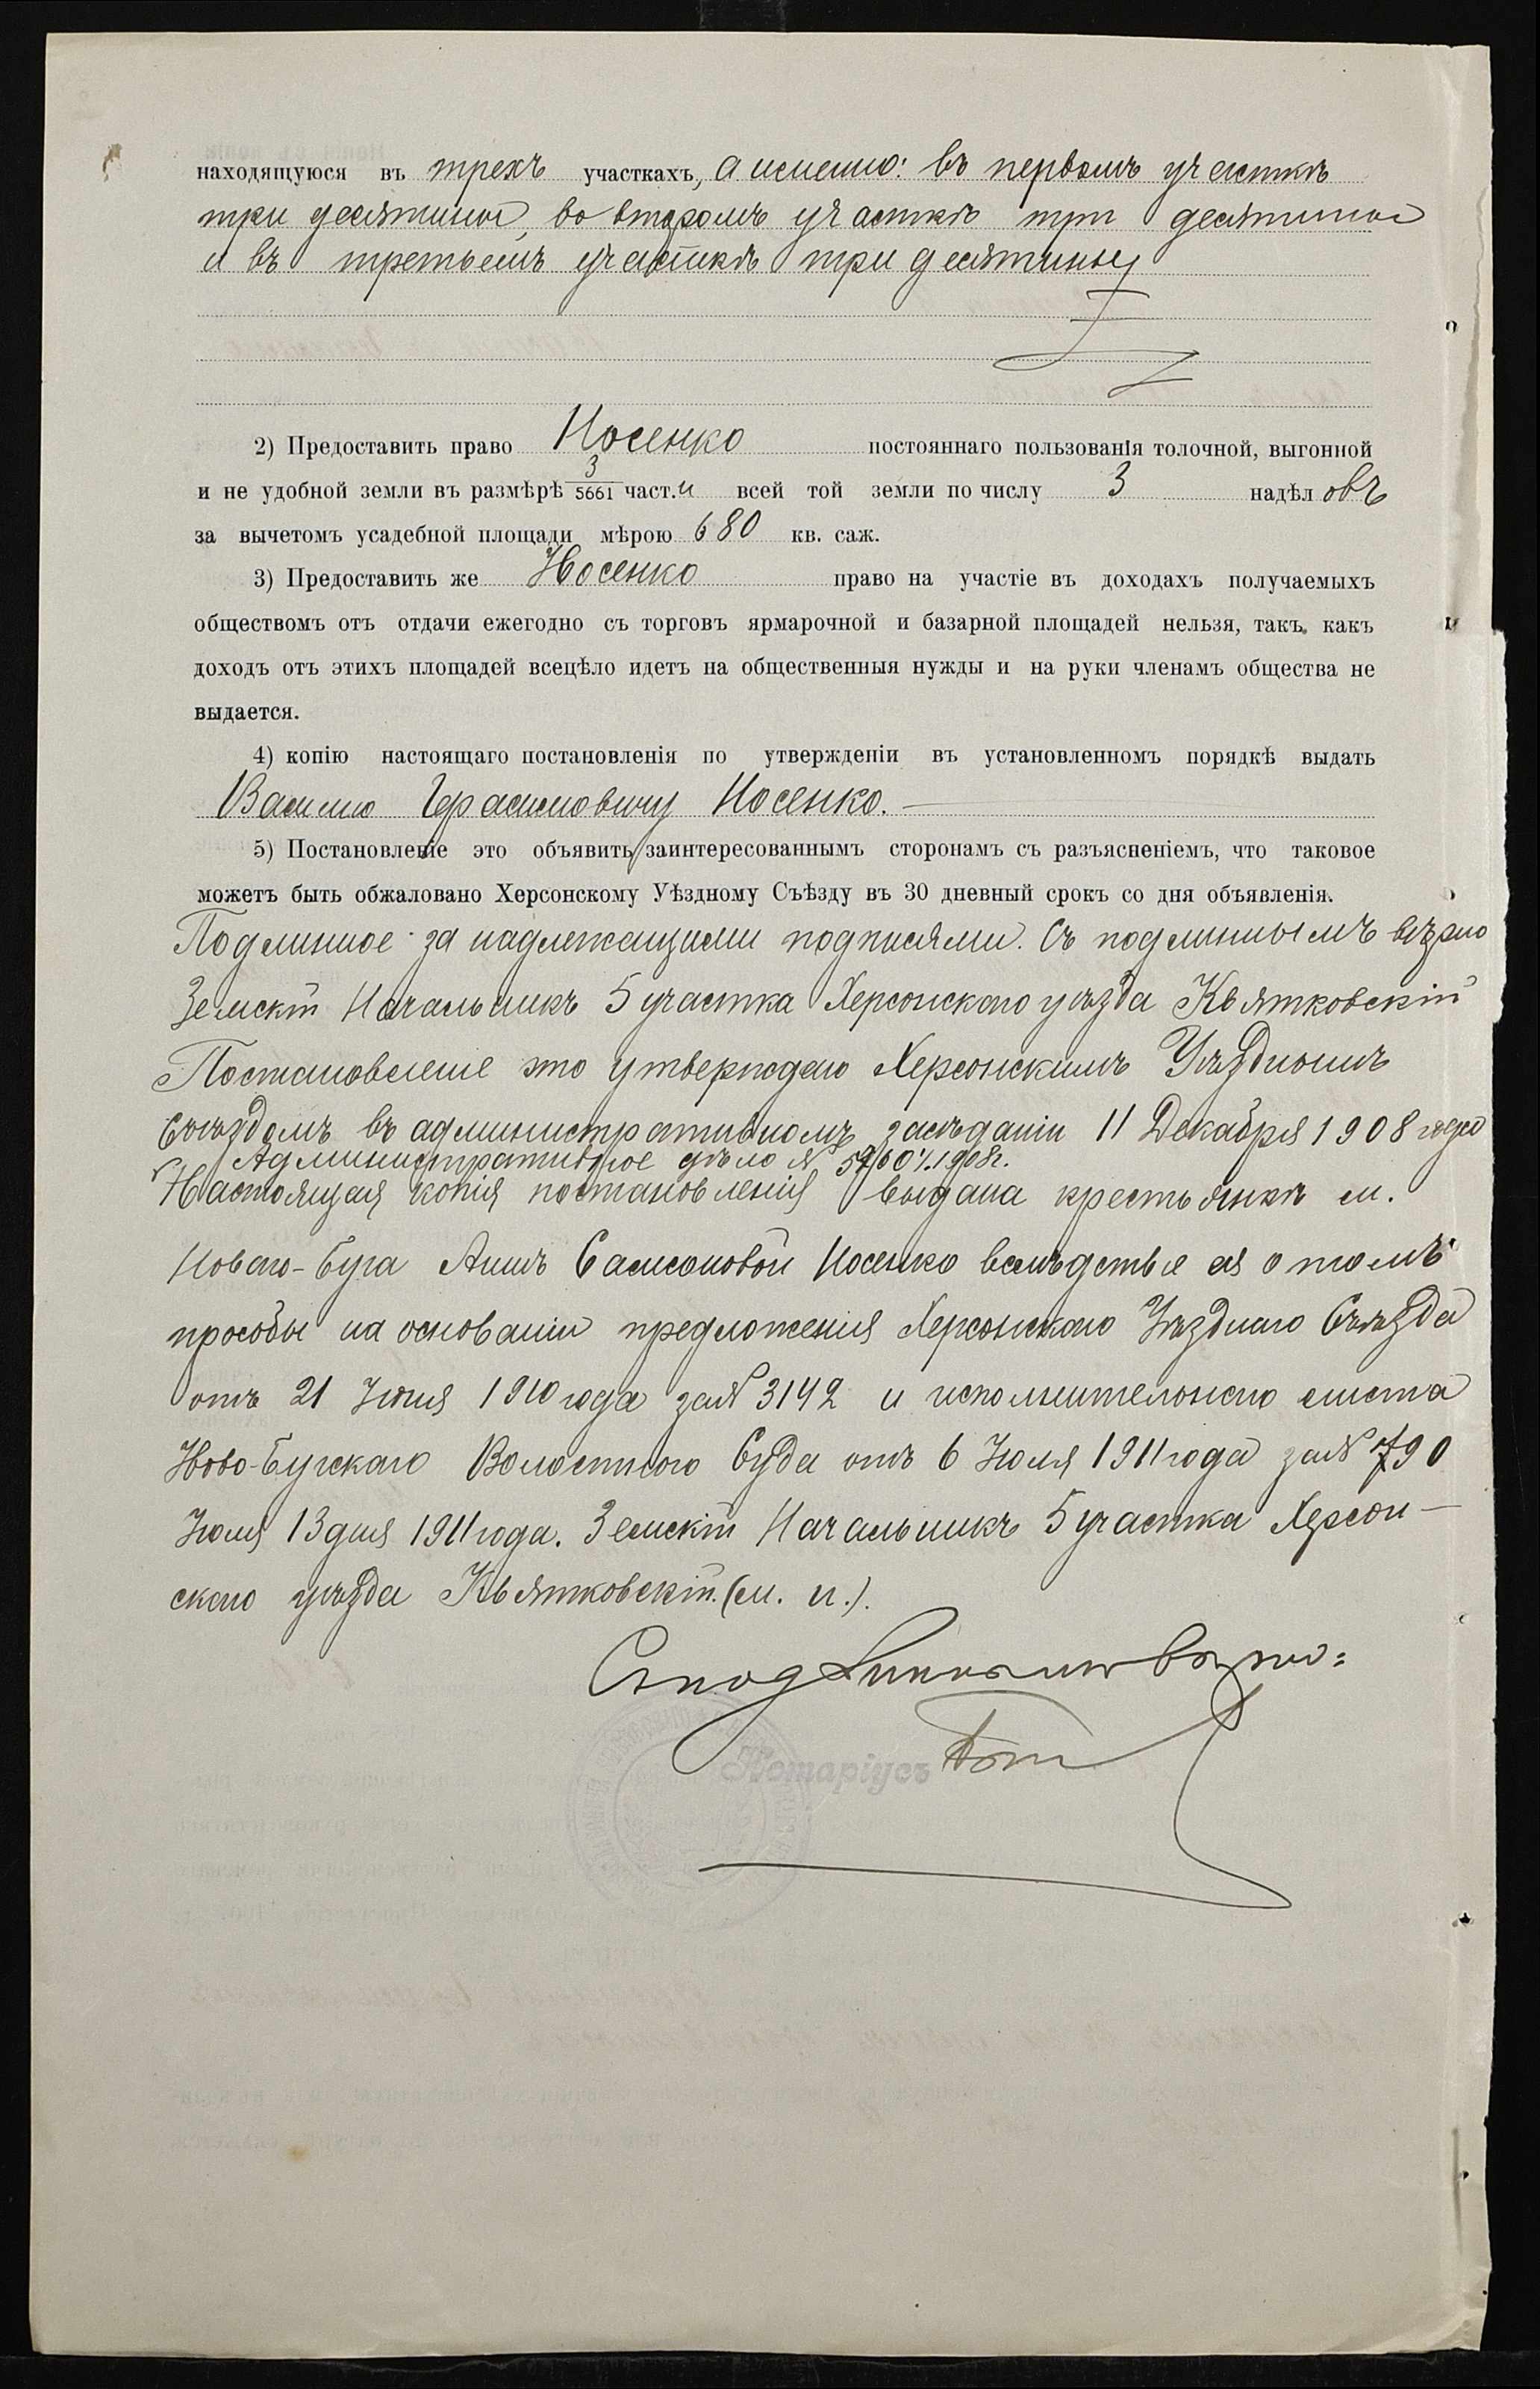 находящуюся въ трехъ участкахъ, а именно: въ первомъ участкѣ
три десятины, во второмъ участкѣ три десятины
и въ третьемъ участкѣ три десятины
2) Предоставить право Носенко постояннаго пользованія толочной, выгонной
и не удобной земли въ размѣрѣ 3/5661 част.и всей той земли по числу 3 надѣловъ
за вычетомъ усадебной площади мѣрою 680 кв. саж.
3) Предоставить же Носенко право на участіе въ доходахъ получаемыхъ
обществомъ отъ отдачи ежегодно съ торговъ ярмарочной и базарной площадей нельзя, такъ какъ
доходъ отъ этихъ площадей всецѣло идетъ на общественныя нужды и на руки членамъ общества не
выдается.
4) копію настоящаго постановленія по утвержденіи въ установленномъ порядкѣ выдать
Василию Герасимовичу Носенко.
5) Постановленіе это объявить заинтересованнымъ сторонамъ съ разъясненіемъ, что таковое
можетъ быть обжаловано Херсонскому Уѣздному Съѣзду въ 30 дневный срокъ со дня объявленія.
Подлинное за надлежащими подписями. Съ подлиннымъ вѣрно
Земскій Начальникъ 5 участка Херсонскаго уѣзда Квятковскій
Постановленіе это утверждено Херсонскимъ Уѣзднымъ
Съѣздомъ въ административномъ засѣданіи 11 Декабря 1908 года
Административное дѣло № 5760/1908г.
Настоящая копія постановленія выдана крестьянкѣ м.
Новаго-Буга Аннѣ Самсоновой Носенко вслѣдствіе ея о томъ
просьбы на основаніи предложенія Херсонскаго Уѣзднаго Съѣзда
отъ 21 Іюня 1910 года за № 3142 и исполнительнаго листа
Ново-Бугскаго Волостного Суда отъ 6 Іюля 1911 года за № 790
Іюля 13 дня 1911 года. Земскій Начальникъ 5 участка Херсон-
скаго уѣзда Квятковскій. (м. п.).
Съ подлиннымъ вѣрно:
Нотаріусъ